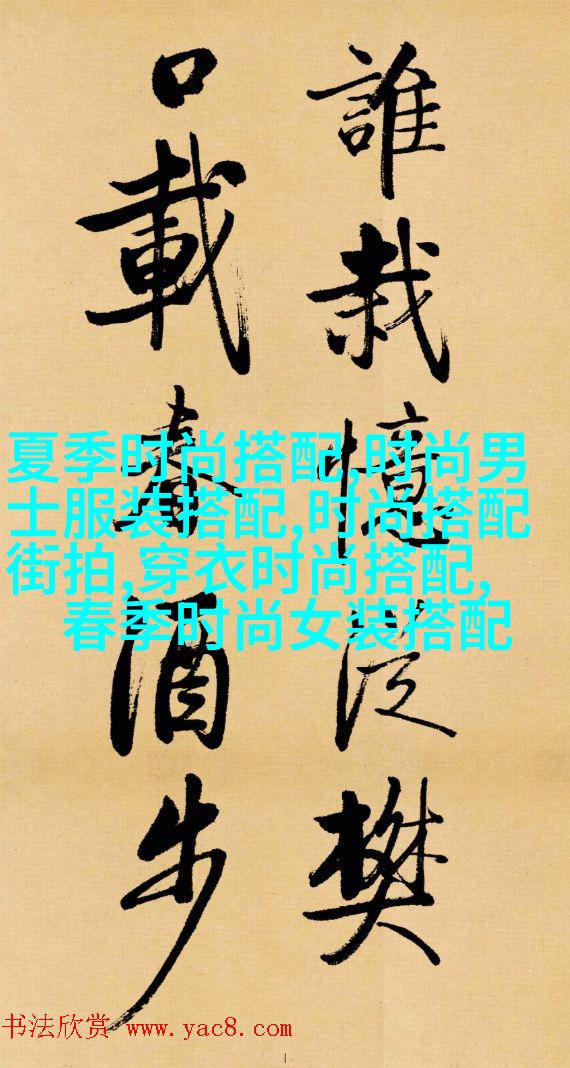 誰栽憶從樊
口載春酒步
夏季时尚搭配,时尚男
士服装搭配,时尚搭配
街拍,穿衣时尚搭配,
春季时尚女装搭配
书法欣赏 www.yac8.com